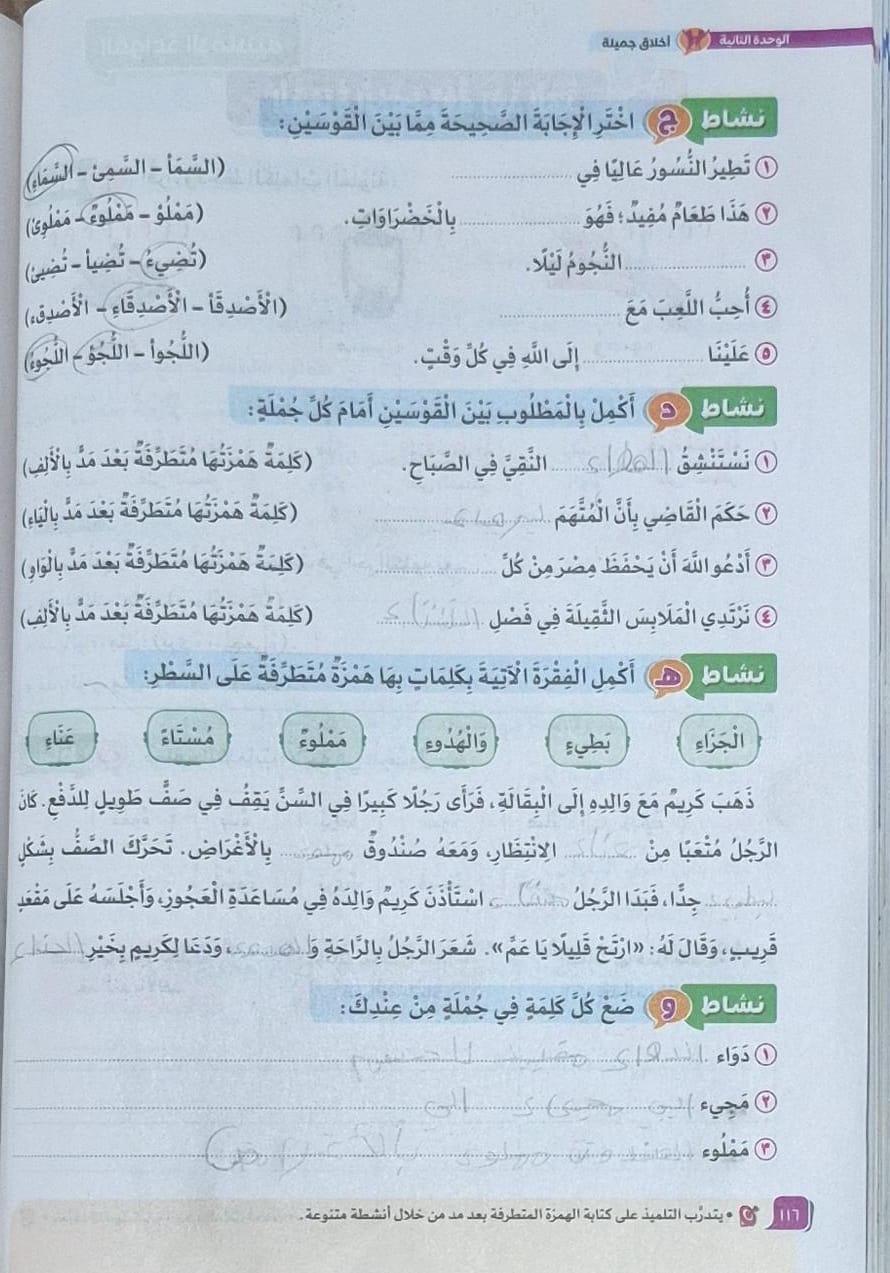 الوحدة الثانية ٢ أخلاق جميلة
نشاط ج اخْتَرِ الْإِجَابَةَ الصَّحِيحَةَ مِمَّا بَيْنَ الْقَوْسَيْنِ:
١ تَطِيرُ النُّسُورُ عَالِيًا فِي .................... (السَّمَأ - السَّمِئ - السَّمَاءِ)
٢ هَذَا طَعَامٌ مُفِيدٌ؛ فَهُوَ .................... بِالْخَضْرَاوَاتِ. (مَمْلُؤ - مَمْلُوءٌ - مَمْلُوئ)
٣ .................... النُّجُومُ لَيْلًا. (تُضِيءُ - تُضِيأ - تُضِيئ)
٤ أُحِبُّ اللَّعِبَ مَعَ .................... (الْأَصْدِقَأ - الْأَصْدِقَاءِ - الْأَصْدِقِء)
٥ عَلَيْنَا .................... إِلَى اللَّهِ فِي كُلِّ وَقْتٍ. (اللُّجُوأ - اللُّجُؤ - اللُّجُوءُ)
نشاط د أَكْمِلْ بِالْمَطْلُوبِ بَيْنَ الْقَوْسَيْنِ أَمَامَ كُلِّ جُمْلَةٍ:
١ نَسْتَنْشِقُ الهواء النَّقِيَّ فِي الصَّبَاحِ. (كَلِمَةٌ هَمْزَتُهَا مُتَطَرِّفَةٌ بَعْدَ مَدٍّ بِالْأَلِفِ)
٢ حَكَمَ الْقَاضِي بِأَنَّ الْمُتَّهَمَ .................... (كَلِمَةٌ هَمْزَتُهَا مُتَطَرِّفَةٌ بَعْدَ مَدٍّ بِالْيَاءِ)
٣ أَدْعُو اللَّهَ أَنْ يَحْفَظَ مِصْرَ مِنْ كُلِّ .................... (كَلِمَةٌ هَمْزَتُهَا مُتَطَرِّفَةٌ بَعْدَ مَدٍّ بِالْوَاوِ)
٤ نَرْتَدِي الْمَلَابِسَ الثَّقِيلَةَ فِي فَصْلِ الشتاء (كَلِمَةٌ هَمْزَتُهَا مُتَطَرِّفَةٌ بَعْدَ مَدٍّ بِالْأَلِفِ)
نشاط هـ أَكْمِلِ الْفِقْرَةَ الْآتِيَةَ بِكَلِمَاتٍ بِهَا هَمْزَةٌ مُتَطَرِّفَةٌ عَلَى السَّطْرِ:
الْجَزَاءِ بَطِيءٍ وَالْهُدُوءِ مَمْلُوءٌ مُسْتَاءً عَنَاءِ
ذَهَبَ كَرِيمٌ مَعَ وَالِدِهِ إِلَى الْبِقَالَةِ، فَرَأَى رَجُلًا كَبِيرًا فِي السِّنِّ يَقِفُ فِي صَفٍّ طَوِيلٍ لِلدَّفْعِ. كَانَ
الرَّجُلُ مُتْعَبًا مِنْ .................... الِانْتِظَارِ، وَمَعَهُ صُنْدُوقٌ .................... بِالْأَغْرَاضِ. تَحَرَّكَ الصَّفُّ بِشَكْلٍ
.................... جِدًّا، فَبَدَا الرَّجُلُ .................... اسْتَأْذَنَ كَرِيمٌ وَالِدَهُ فِي مُسَاعَدَةِ الْعَجُوزِ، وَأَجْلَسَهُ عَلَى مَقْعَدٍ
قَرِيبٍ، وَقَالَ لَهُ: «ارْتَحْ قَلِيلًا يَا عَمِّ». شَعَرَ الرَّجُلُ بِالرَّاحَةِ وَ....................، وَدَعَا لِكَرِيمٍ بِخَيْرِ ....................
نشاط و ضَعْ كُلَّ كَلِمَةٍ فِي جُمْلَةٍ مِنْ عِنْدِكَ:
١ دَوَاء
٢ مَجِيء
٣ مَمْلُوء
١١٦ • يتدرَّب التلميذ على كتابة الهمزة المتطرفة بعد مد من خلال أنشطة متنوعة.